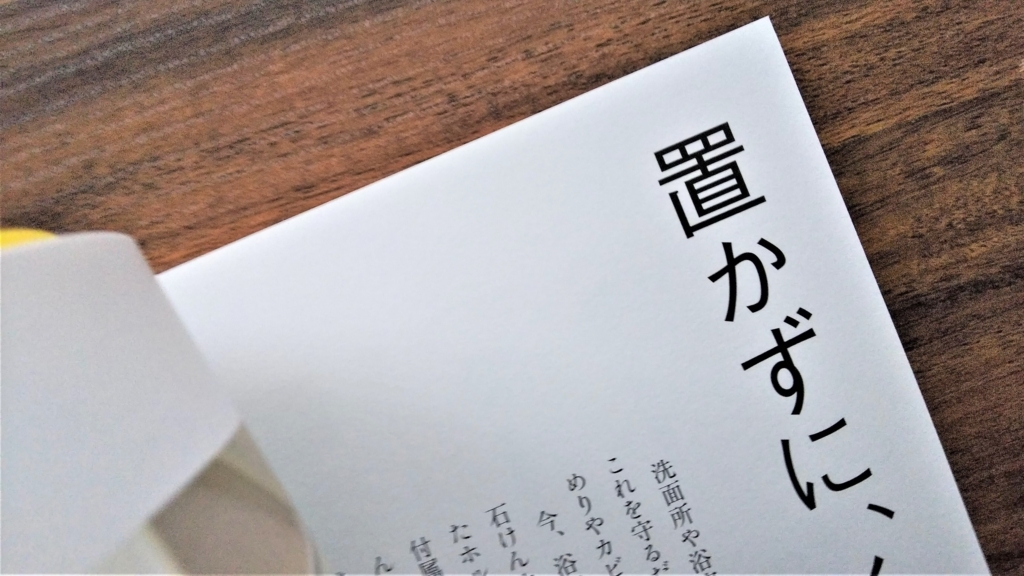 置かずに、
洗面所や浴
これを守るだ
めりやカビ
今、浴
石けん
たホル
付属
ん